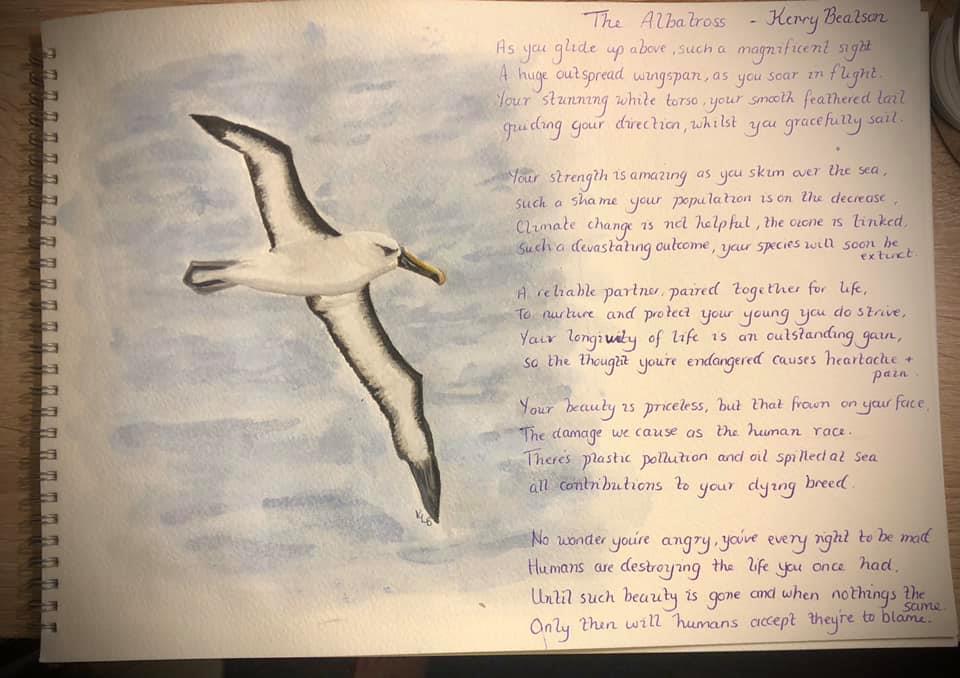 The Albatross - Kerry Beatson
As you glide up above, such a magnificent sight
A huge outspread wingspan, as you soar in flight.
Your stunning white torso, your smooth feathered tail
guiding your direction, whilst you gracefully sail.
Your strength is amazing as you skim over the sea,
such a shame your population is on the decrease,
Climate change is not helpful, the ozone is linked,
Such a devastating outcome, your species will soon be
extinct.
A reliable partner, paired together for life,
To nurture and protect your young you do strive,
Your longivity of life is an outstanding gain,
so the thought you're endangered causes heartache +
pain.
Your beauty is priceless, but that frown on your face,
The damage we cause as the human race.
There's plastic pollution and oil spilled at sea
all contributions to your dying breed.
No wonder you're angry, you've every right to be mad
Humans are destroying the life you once had,
Until such beauty is gone and when nothings the
same.
Only then will humans accept they're to blame.
KLB